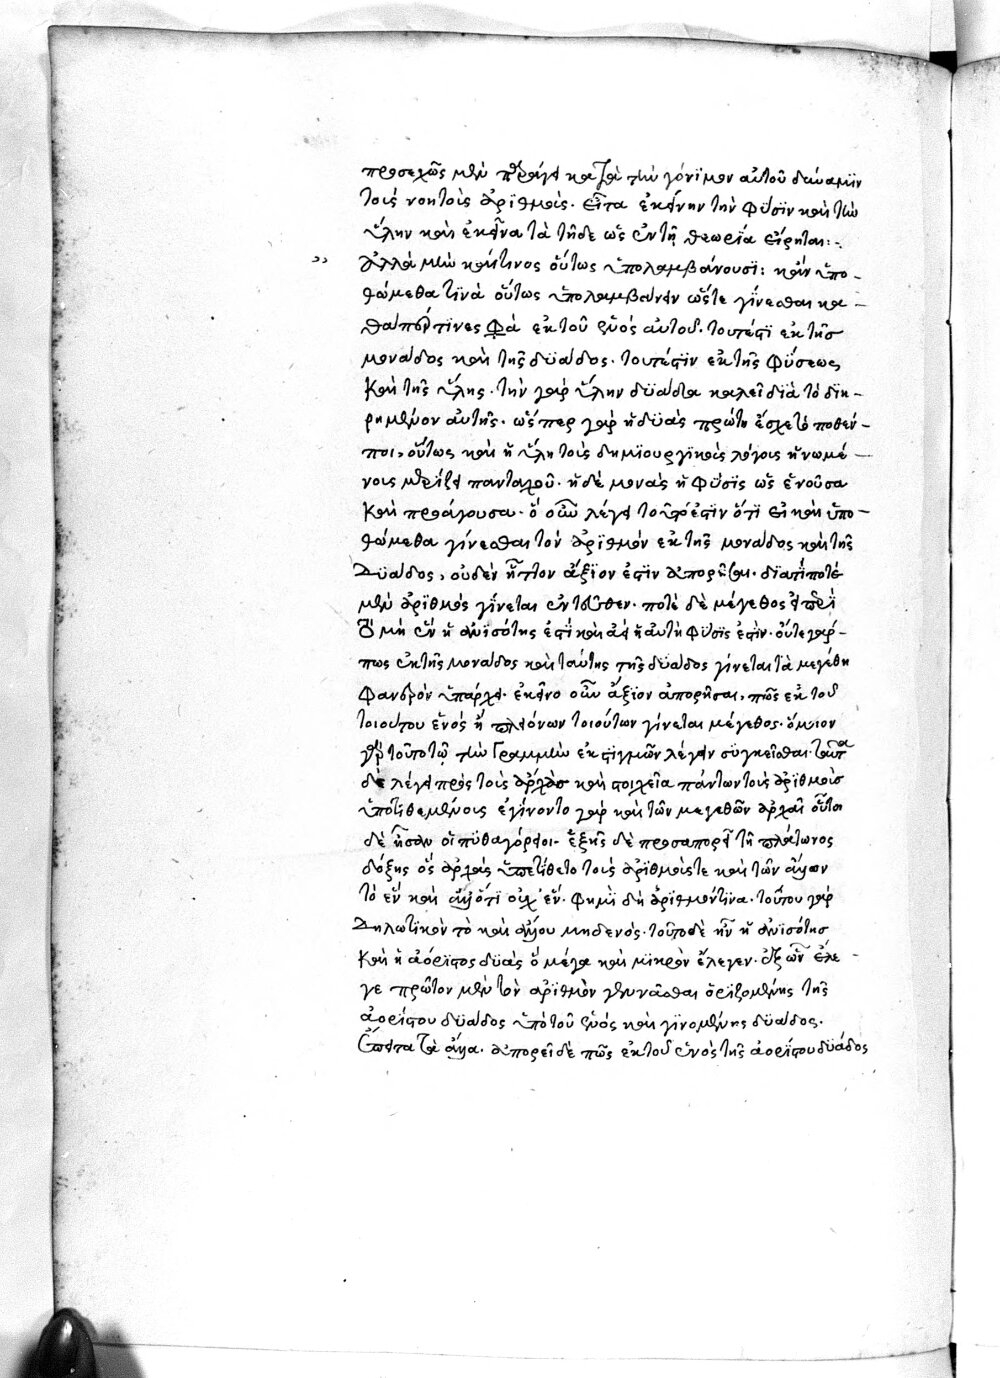 προσεχῶς μὲν παράγει κατὰ τὴν γόνιμον αὐτοῦ δύναμϊν
τοῖς νοητοῖς ἀρϊθμοῖς. εἶτα ἐκείνην τὴν φύσϊν καὶ τὴν
ὕλην καὶ ἐκεῖνα τὰ τῆδε ὡς ἐν τῆ θεωρία εἴρηται:
ἀλλὰ μὴν καί τινος οὕτως ὑπολαμβάνουσϊ: κἂν ὑπο-
θώμεθα τϊνὰ οὕτως ὑπολαμβάνειν ὥστε γίνεσθαι κα-
θάπερ τϊνές φα ἐκ τοῦ ἑνὸς αὐτοῦ. τουτέστϊ ἐκ τῆς
μονάδος καὶ τῆς δϋάδος. τουτέστϊν ἐκ τῆς φύσεως
καὶ τῆς ὕλης. τὴν γὰρ ὕλην δϋάδα καλεῖ διὰ τὸ διη-
ρημένον αὐτῆς. ὥσπερ γὰρ ἡ δϋὰς πρώτη ἔσχε τό ποθέν
ποι, οὕτως καὶ ἡ ὕλη τοῖς δημϊουργϊκοῖς λόγοις ἡνωμέ-
νοις μερίζει πανταχοῦ. ἡ δὲ μονὰς ἡ φύσϊς ὡς ἑνοῦσα
καὶ προάγουσα. ὃ οὖν λέγει τοῦτό ἐστϊν ὅτϊ εἰ καὶ ὑπο-
θώμεθα γίνεσθαι τὸν ἀρϊθμὸν ἐκ τῆς μονάδος καὶ τῆς
δϋάδος, οὐδὲν ἧττον ἄξϊον ἐστϊν ἀπορῆσαι. δϊατί ποτὲ
μὲν ἀρϊθμὸς γίνεται ἐντεῦθεν. ποτὲ δὲ μέγεθος εἴπερ
τὸ μὴ ἓν ἡ ἀνϊσότης ἐστὶ καὶ ἀεὶ ἡ αὐτὴ φύσϊς ἐστὶν. οὔτε γάρ
πως ἐκ τῆς μονάδος καὶ ταύτης τῆς δϋάδος γίνεται τὰ μεγέθη
φανερὸν ὑπάρχει. ἐκεῖνο οὖν ἄξιον ἀπορῆσαι, πῶς ἐκ τοῦ
τοιούτου ἑνὸς ἢ πλειόνων τοιούτων γίνεται μέγεθος. ὅμοιον
γὰρ τοῦτο τῶ τὴν γραμμὴν ἐκ στϊγμῶν λέγειν συγκεῖσθαι. ταῦτα
δὲ λέγει πρὸς τοὺς ἀρχὰς καὶ στοιχεῖα πάντων τοὺς ἀρϊθμοὺς
ὑποτϊθεμένους ἐγίνοντο γὰρ καὶ τῶν μεγεθῶν ἀρχαὶ οὗτοι
δὲ ἦσαν οἱ πϋθαγόρειοι. ἑξῆς δὲ προσαπορεῖ τῆ πλάτωνος
δόξης ὃς ἀρχὰς ὑπετίθετο τοῖς ἀρϊθμοῖς τε καὶ τῶν ἄλλων
τὸ ἓν καὶ ἄλλο τϊ οὐχ' ἕν. φημὶ δὴ ἀρϊθμόν τινα. τούτου γὰρ
δηλωτϊκὸν τὸ καὶ ἄλλου μηδενός. τοῦτο δὲ ἦν ἡ ἀνϊσότης
καὶ ἡ ἀόρϊστος δϋὰς ὃ μέγα καὶ μϊκρὸν ἔλεγεν. ἐξ ὧν ἔλε-
γε πρῶτον μὲν τὸν ἀρϊθμὸν γεννᾶσθαι ὁρϊζομένης τῆς
ἀορίστου δϋάδος ὑπὸ τοῦ ἑνὸς καὶ γϊνομένης δϋάδος.
ἔπειτα τὰ ἄλλα. ἀπορεῖ δὲ πῶς ἐκ τοῦ ἑνὸς τῆς ἀορίστου δϋάδος